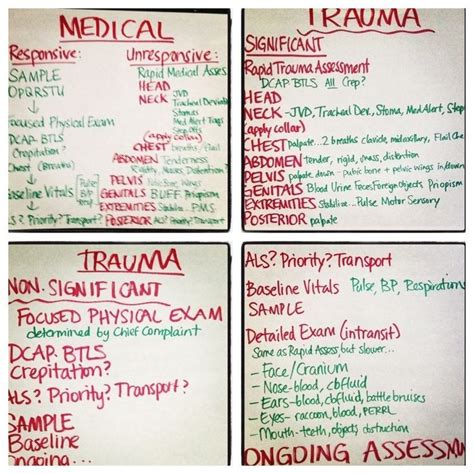 MEDICAL
Responsive:
SAMPLE
OPQRSTU
Focused Physical Exam
DCAP-BTLS
Crepitation?
Chest (Breaths)
Baseline Vitals
Pulse
BP
ALS? Priority? Transport?
Unresponsive:
Rapid Medical Asses
HEAD
NECK JVD
Tracheal Deviation
Stomas
Med Alert Tags
(apply collar)
CHEST breaths/Flail
ABDOMEN Tenderness
Rigidity, Masses, Distention
PELVIS
GENITALS BUFF Priopism
EXTREMITIES Stabilize P.M.S.
POSTERIOR ALS? Priority? Transport
TRAUMA
SIGNIFICANT
Rapid Trauma Assessment
DCAP-BTLS All Crep?
HEAD
NECK-JVD, Tracheal Dev, Stoma, Med Alert, Step
(apply collar)
CHEST palpate...2 breaths clavicle, midaxillary, Flail Che
ABDOMEN tender, rigid, mass, distention
PELVIS palpate down - pubic bone + pelvic wings in
GENITALS Blood Urine Feces Foreign Objects Priopism
EXTREMITIES Stabilize...Pulse Motor Sensory
POSTERIOR palpate
TRAUMA
NON-SIGNIFICANT
FOCUSED PHYSICAL EXAM
determined by Chief Complaint
DCAP-BTLS
Crepitation?
ALS? Priority? Transport?
SAMPLE
Baseline
Ongoing...
ALS? Priority? Transport
Baseline Vitals Pulse, BP, Respiration
SAMPLE
Detailed Exam (intransit)
Same as Rapid Assess but slower...
- Face/Cranium
- Nose-blood, cbfluid
- Ears-blood, cbfluid, battle bruises
- Eyes-raccoon, blood, PERRL
- Mouth-teeth, objects obstruction
ONGOING ASSESSM